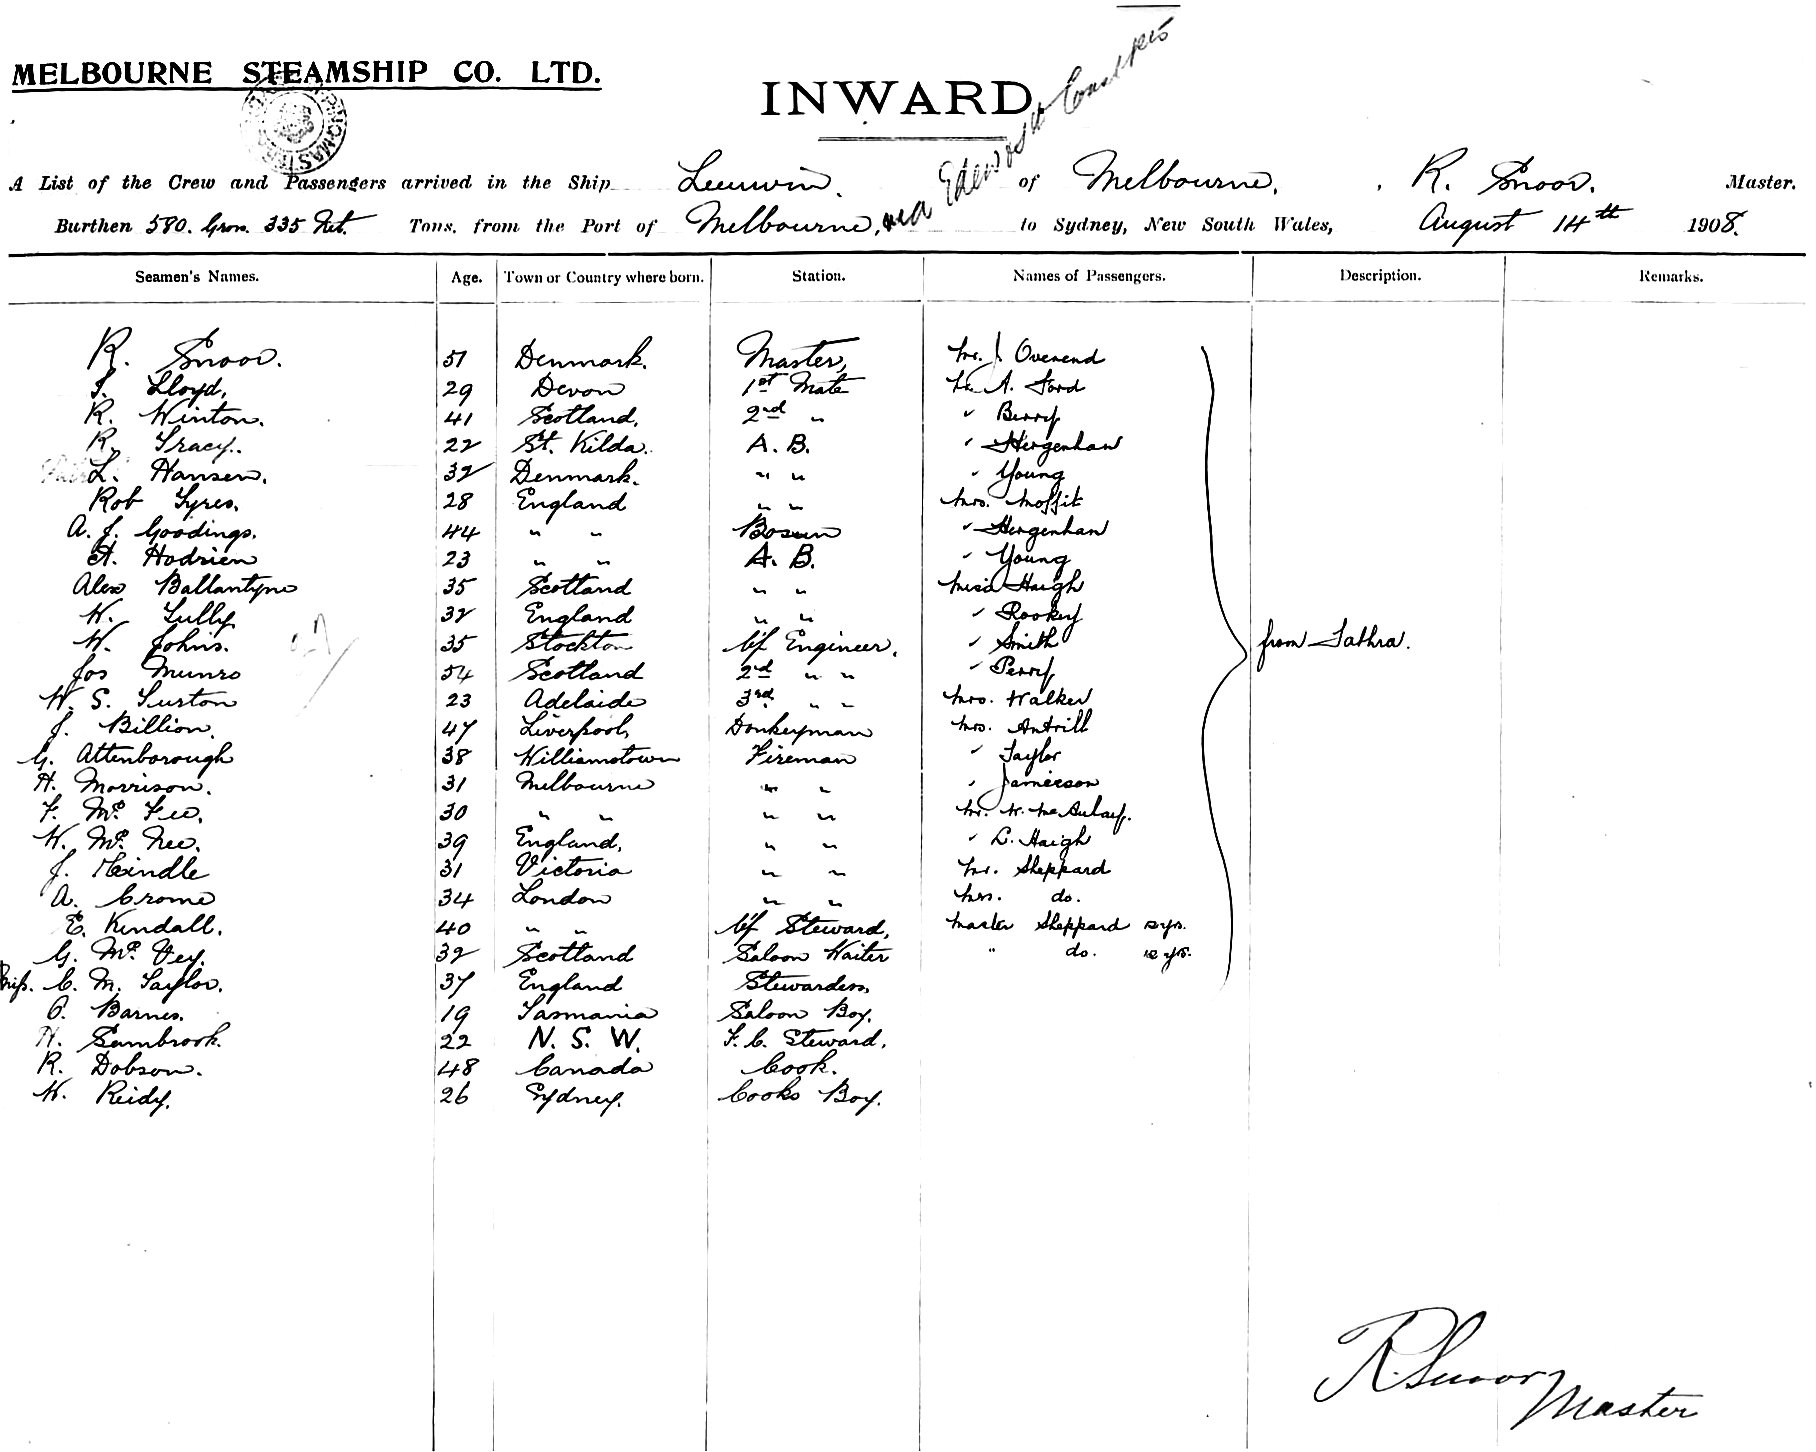 MELBOURNE STEAMSHIP CO. LTD.
INWARD
A List of the Crew and Passengers arrived in the Ship Leeuwin. of Melbourne, R. Snoor. Master.
Burthen 580. Gros. 335 Net. Tons. from the Port of Melbourne, via Eden to Sydney, New South Wales, August 14th 1908.
Seamen's Names. Age. Town or Country where born. Station. Names of Passengers. Description. Remarks.
R. Snoor. 51 Denmark. Master, Mr. J. Ovenend
Lloyd, 29 Devon 1st Mate Mr A. Ford
R. Winton. 41 Scotland, 2nd " " Berry
R. Tracy. 22 St. Kilda. A. B. " Hergenhan
L. Hansen. 32 Denmark. " " " Young
Rob Tyres. 28 England " " Mrs. Moffit
A. J. Goodings. 44 " " Bosun " Hergenhan
H. Hodrien 23 " " A. B. " Young
Alex Ballantyne 35 Scotland " " Miss Haigh
W. Tully 32 England " " " Rookey
W. Johns. 35 Stockton Cf Engineer, " Smith from Tathra.
Jos Munro 54 Scotland 2nd " " " Perry
W. S. Turton 23 Adelaide 3rd " " Mrs. Walker
J. Billion. 47 Liverpool, Donkeyman Mrs. Antrill
G. Attenborough 38 Williamstown Fireman " Taylor
H. Morrison. 31 Melbourne " " " Jamieson
F. Mc Fee. 30 " " " " Mr. W. McAulay.
W. Mc Nee. 39 England, " " " L. Haigh
J. Heindle 31 Victoria " " Mr. Sheppard
A. Crome 34 London " " Mrs. do.
E. Kindall. 40 " " Cf Steward, Master Sheppard
G. Mc Vey. 32 Scotland Saloon Waiter " do.
Miss. C. M. Taylor. 37 England Stewardess,
Barnes. 19 Tasmania Saloon Boy.
H. Sambrook. 22 N. S. W. F. C. Steward.
R. Dobson. 48 Canada Cook.
W. Reidy. 26 Sydney. Cooks Boy.
R. Snoor
Master